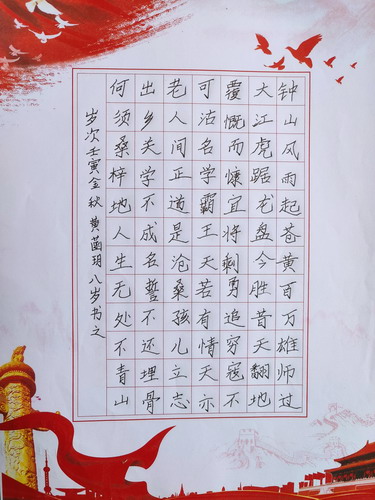 钟山风雨起苍黄百万雄师过
大江虎踞龙盘今胜昔天翻地
覆慨而慷宜将剩勇追穷寇不
可沽名学霸王天若有情天亦
老人间正道是沧桑孩儿立志
出乡关学不成名誓不还埋骨
何须桑梓地人生无处不青山
岁次壬寅金秋 黄菡玥八岁书之